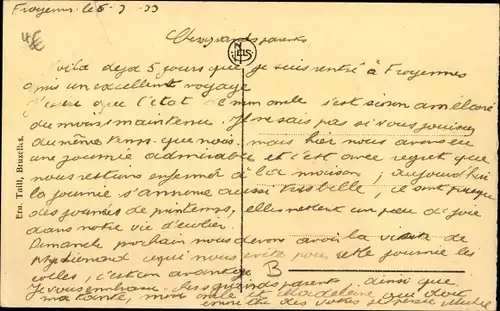 Froyennes le 5-3-33
Chers grands parents
Voilà deja 5 jours que je suis rentré à Froyennes
après un excellent voyage
J'espère que l'état de mon oncle s'est sinon amélioré
du moins maintenu. Je ne sais pas si vous jouissez
du même temps que nous mais hier nous avons eu
une journée admirable et c'est avec regret que
nous restions enfermés à la maison; aujourd'hui
la journée s'annonce aussi très belle, ce sont presque
des journées de printemps, elles mettent un peu de joie
dans notre vie d'écolier.
Dimanche prochain nous devons avoir la visite de
ce qui nous évite pour cette journée les
colles, c'est un avantage
Je vous embrasse chers grands parents ainsi que
ma tante, mon oncle et Madeleine qui doit
être des vôtres
Ern. Thill, Bruxelles.
NELS
B